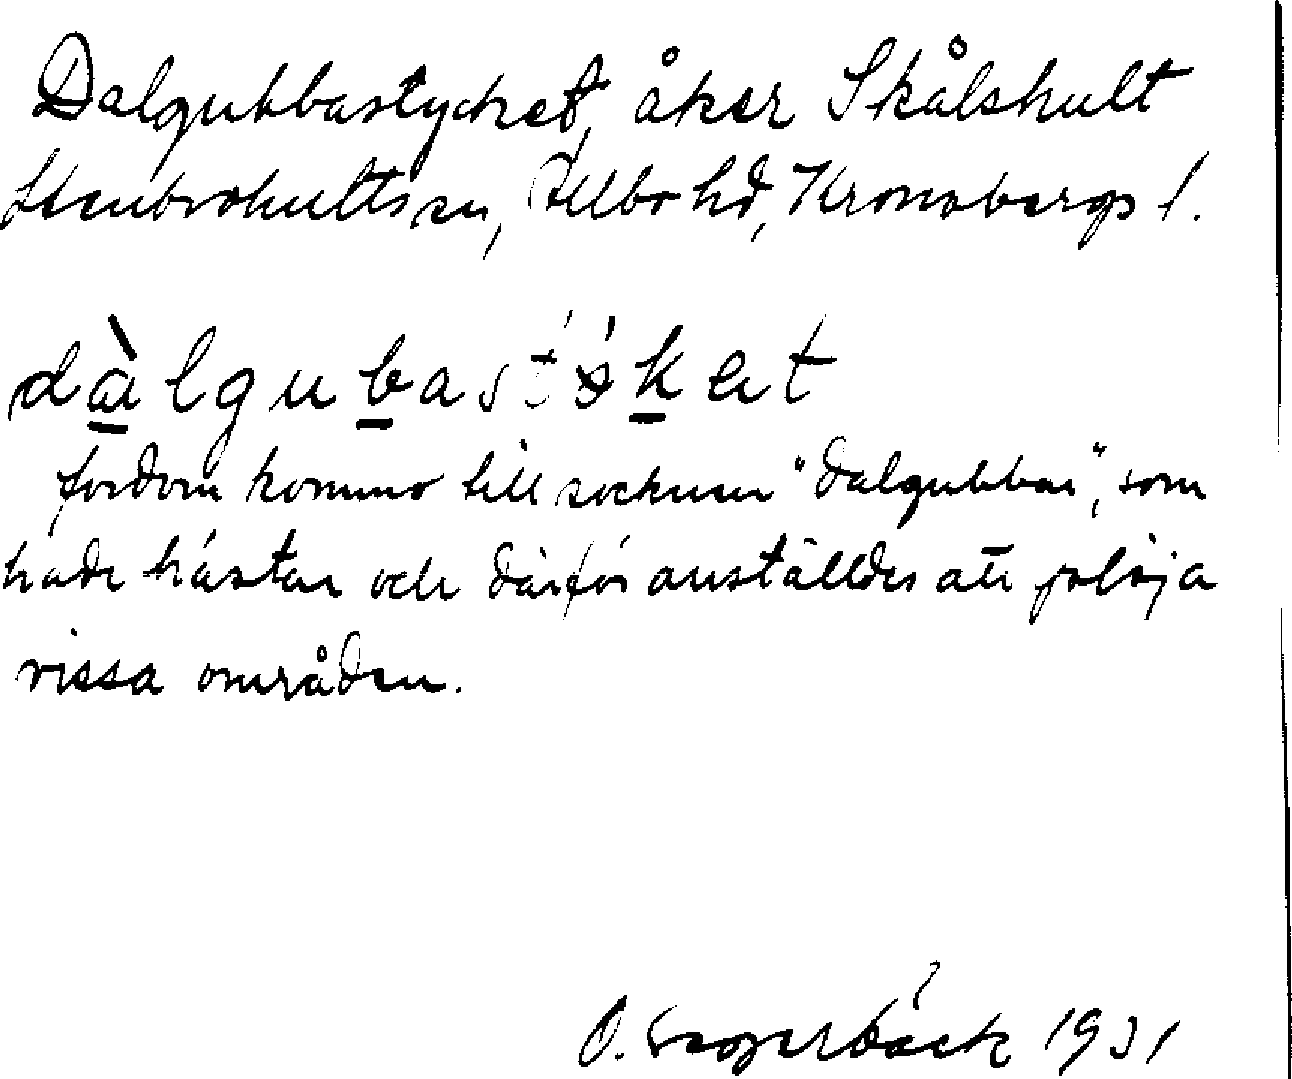 Dalgubbastycket, åker Skålshult
Stenbrohults sn, Allbo hd, Kronobergs l.
dàlgubast́ǿket
fordom kommo till socknen "dalgubbar", som
hade hästar och därför anställdes att plöja
vissa områden.
O. 1931